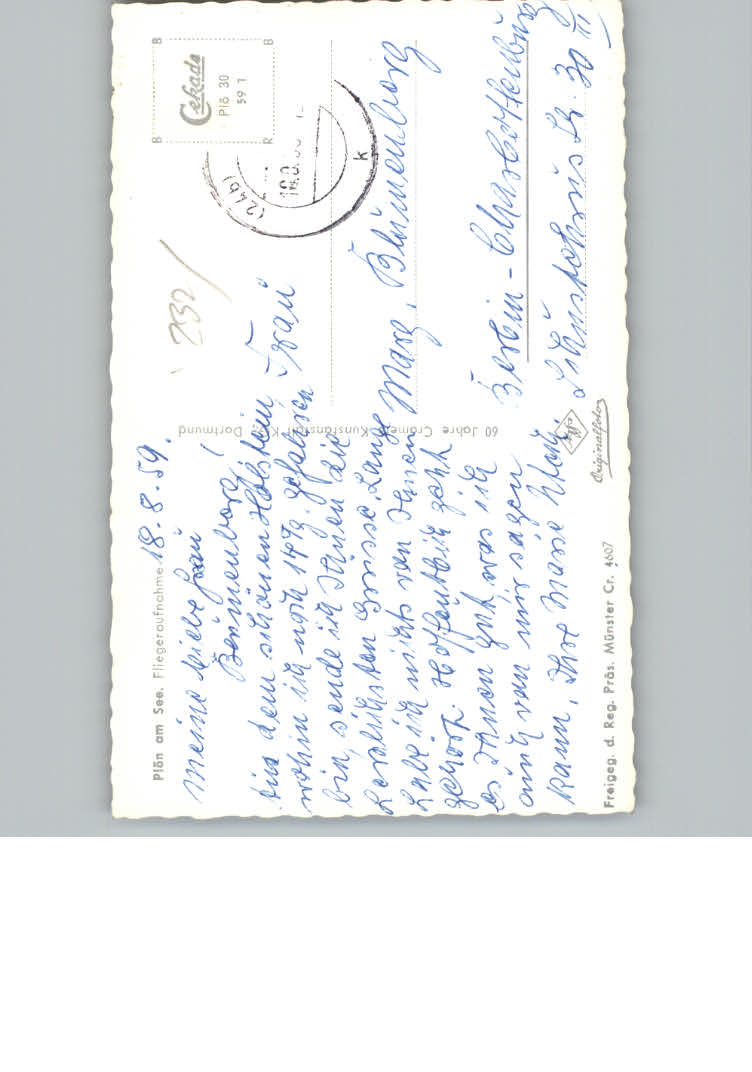 Plön am See. Fliegeraufnahme
18.8.59.
Meine liebe Frau
Blumenborg!
Aus dem schönen Holstein,
wohin ich noch 14 Tg. gefahren
bin, sende ich Ihnen die
herzlichsten Grüsse. Lange
habe ich nichts von Ihnen
gehört. Hoffentlich geht
es Ihnen gut was ich
auch von mir sagen
kann. Ihre Marie
Freigeg. d. Reg. Präs. Münster Cr. 4607
60 Jahre Cramers Kunstanstalt KG, Dortmund
Cekade
Plö 30
59 1
B
B
B
R
(24b)
18.8.
k
232
Frau
Marg. Blumenborg
Berlin-Charlottenburg
Str. 30 III
Agfa
Originalfoto